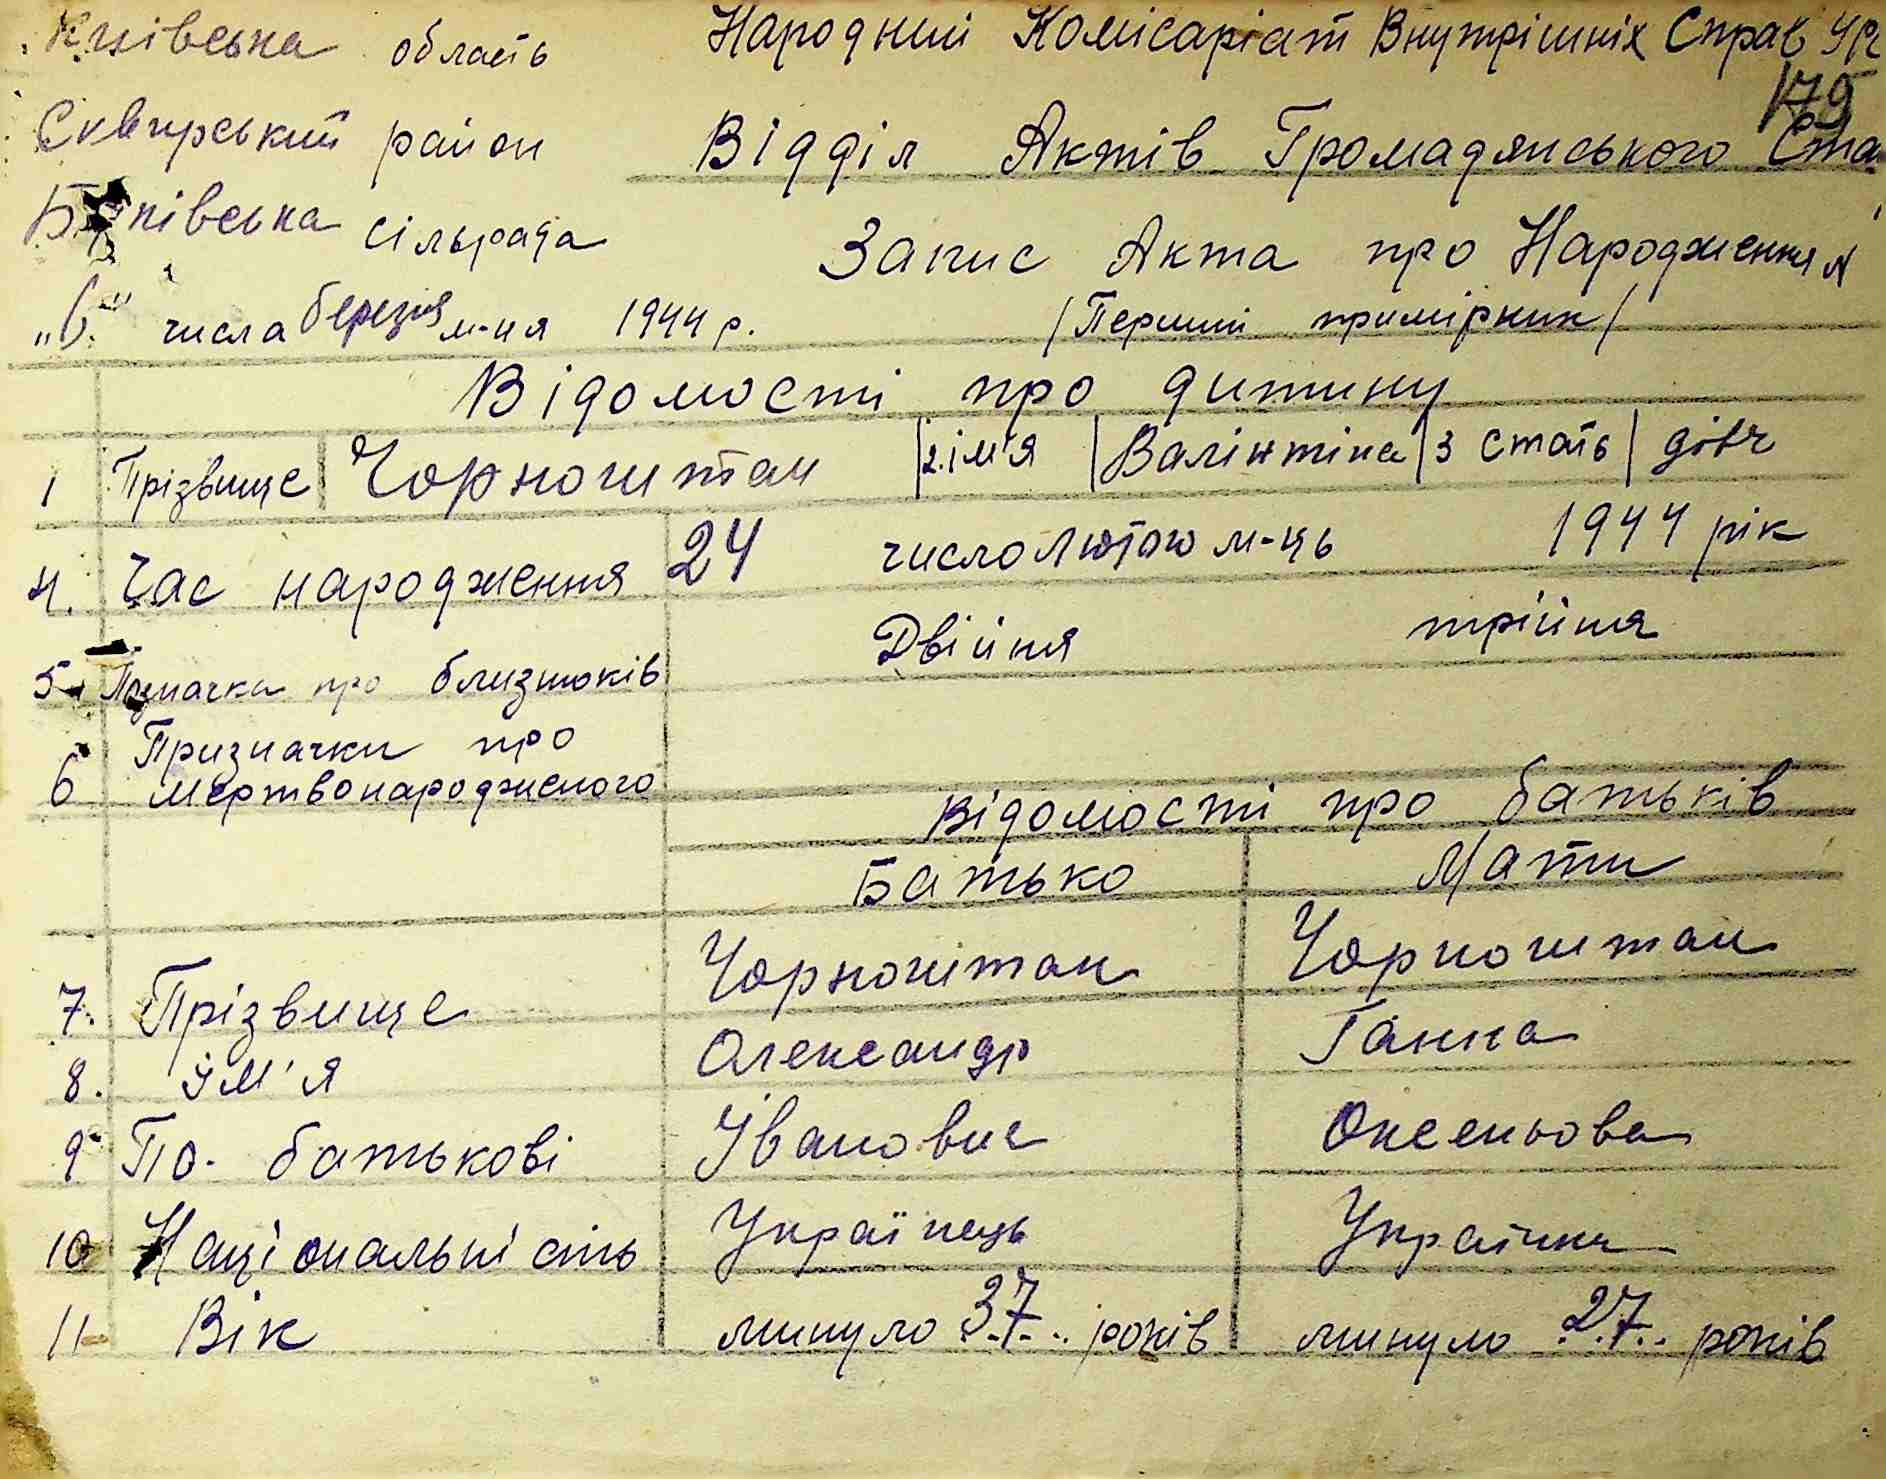 Київська область Народний Комісаріат Внутрішніх Справ УРС
175
Сквирський район Відділ Актів Громадянського Ста
сільрада Запис Акта про Народження
"6" числа березня м-ця 1944 р. /Перший примірник/
Відомості про дитину
1 Прізвище Чорногитан 2. ім'я Валінтіна 3 стать дівч
4. Час народження 24 число Лютого м-ць 1944 рік
5 Позначки про близнюків Двійня трійня
6 Призначки про
мертвонародженого
Відомості про батьків
Батько Мати
7. Прізвище Чорногітан Чорногитан
8. Їм'я Олександр Ганна
9 По. батькові Іванович Оксеньова
10 Національність Українець Українка
11 Вік минуло 37 років минуло 27 років